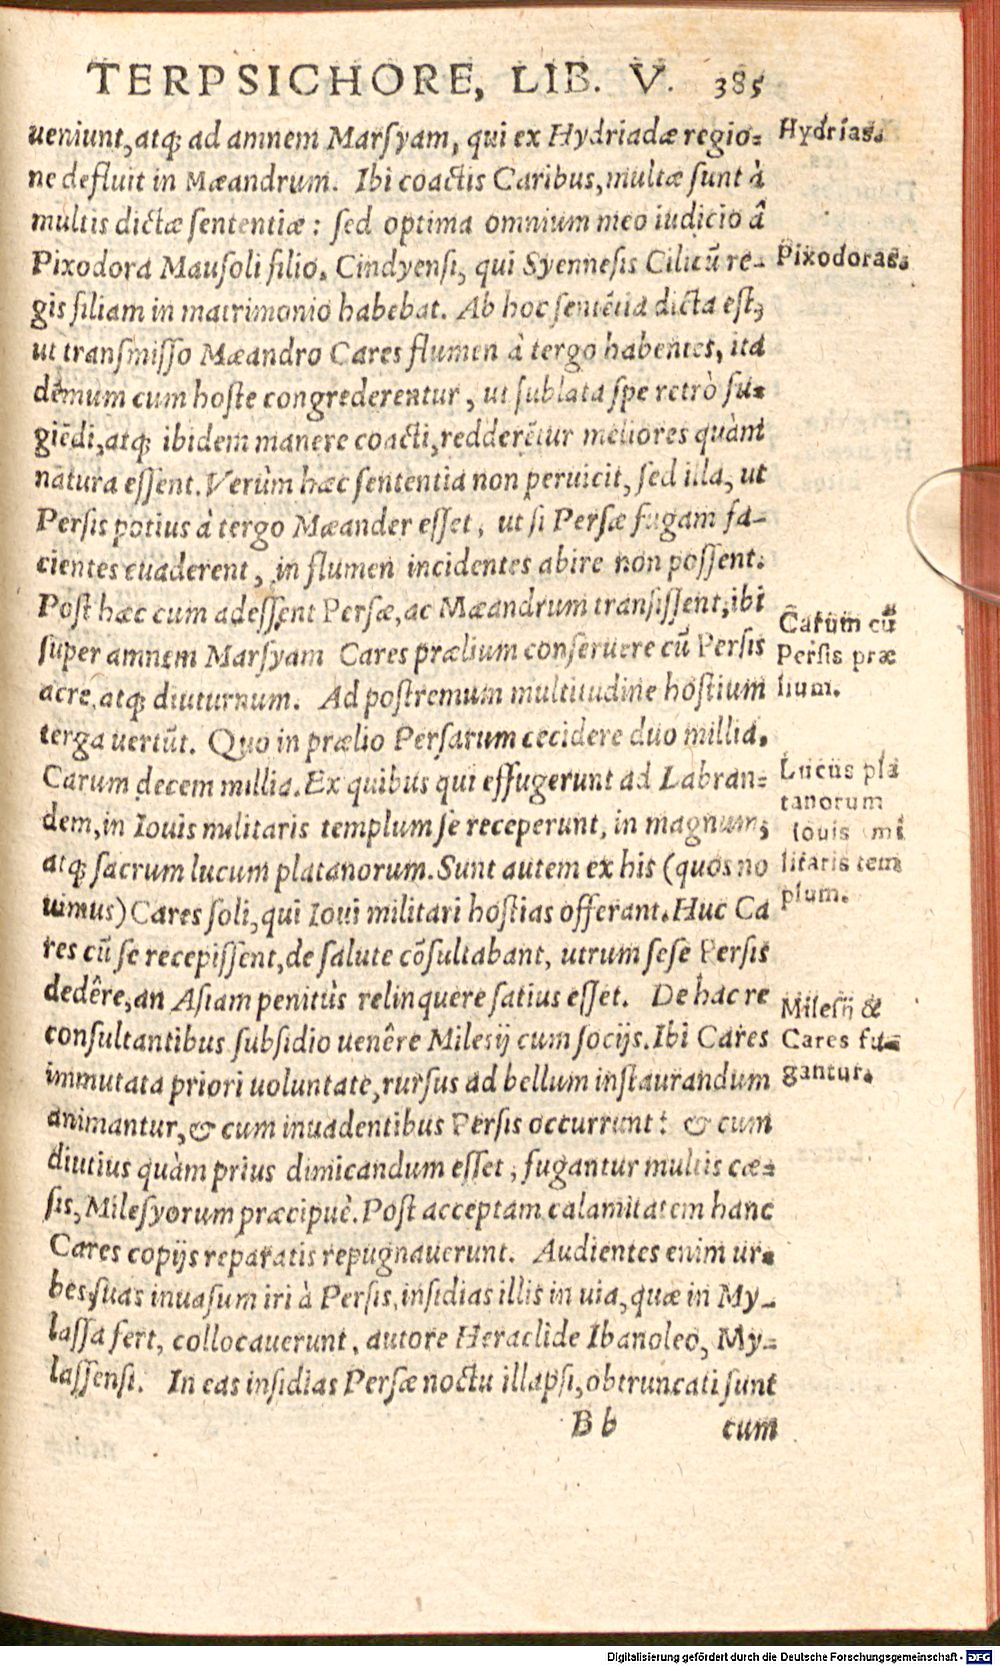 TERPSICHORE, LIB. V. 385
ueniunt, atq; ad amnem Marsyam, qui ex Hydriadæ regio-
ne defluit in Mæandrum. Ibi coactis Caribus, multæ sunt à
multis dictæ sententiæ: sed optima omnium meo iudicio â
Pixodora Mausoli filio, Cindyensi, qui Syennesis Cilicũ re-
gis filiam in matrimonio habebat. Ab hoc sentẽtia dicta est,
ut transmisso Mæandro Cares flumen à tergo habentes, ita
demum cum hoste congrederentur, ut sublata spe retrò fu-
giẽdi, atq; ibidem manere coacti, redderẽtur meliores quàm
natura essent. Verùm hæc sententia non peruicit, sed illa, ut
Persis potius à tergo Mæander esset, ut si Persæ fugam fa-
cientes euaderent, in flumen incidentes abire non possent.
Post hæc cum adessent Persæ, ac Mæandrum transissent, ibi
super amnem Marsyam Cares prælium conseruere cũ Persis
acre, atq; diuturnum. Ad postremum multitudine hostium
terga uertũt. Quo in prælio Persarum cecidere duo millia,
Carum decem millia. Ex quibus qui effugerunt ad Labran-
dem, in Iouis militaris templum se receperunt, in magnum,
atq; sacrum lucum platanorum. Sunt autem ex his (quos no
uimus) Cares soli, qui Ioui militari hostias offerant. Huc Ca
res cũ se recepissent, de salute cõsultabant, utrum sese Persis
dedêre, an Asiam penitùs relinquere satius esset. De hac re
consultantibus subsidio uenêre Milesij cum socijs. Ibi Cares
immutata priori uoluntate, rursus ad bellum instaurandum
animantur, & cum inuadentibus Persis occurrunt: & cum
diutius quàm prius dimicandum esset, fugantur multis cæ-
sis, Milesyorum præcipuè. Post acceptam calamitatem hanc
Cares copijs reparatis repugnauerunt. Audientes enim ur-
bes suas inuasum iri à Persis, insidias illis in uia, quæ in My-
lassa fert, collocauerunt, autore Heraclide Ibanoleo, My-
lassensi. In eas insidias Persæ noctu illapsi, obtruncati sunt
B b cum
Hydrias.
Pixodoras.
Carum cũ
Persis præ
lium.
Lucus pla
tanorum
Iouis mi
litaris tem
plum.
Milesij &
Cares fu-
gantur.
Digitalisierung gefördert durch die Deutsche Forschungsgemeinschaft - DFG